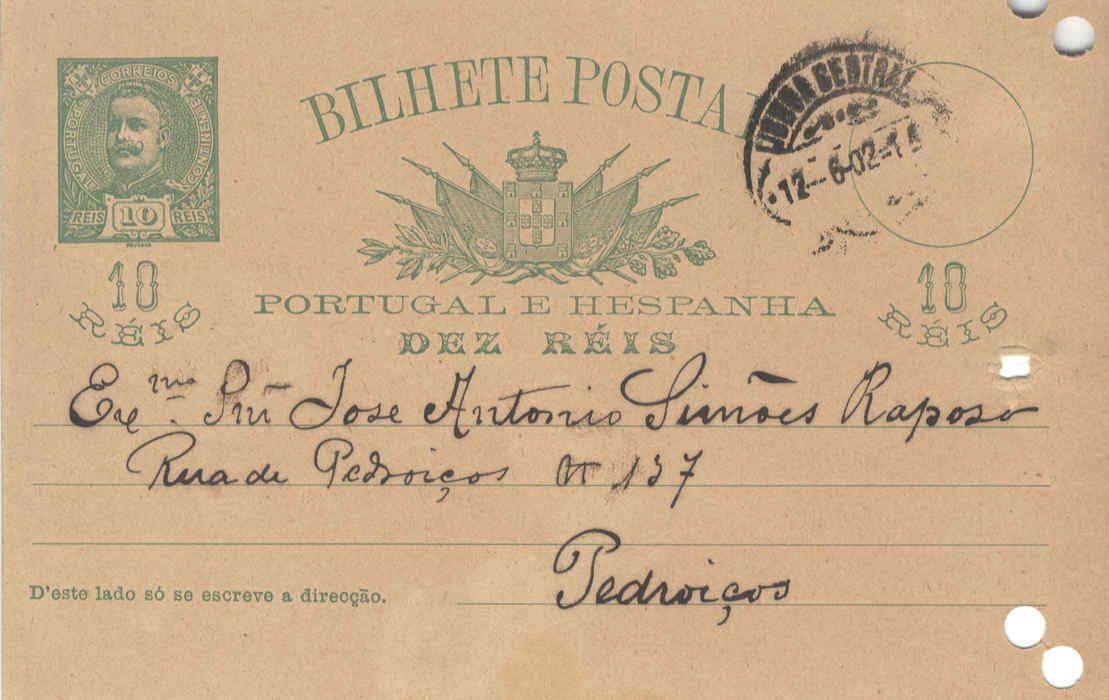 CORREIOS
PORTUGAL
CONTINENTE
REIS 10 REIS
BILHETE POSTAL
LISBOA CENTRAL
12-6-02
10
RÉIS
10
RÉIS
PORTUGAL E HESPANHA
DEZ RÉIS
Exmo. Snr Jose Antonio Simões Raposo
Rua de Pedroiços 137
Pedroiços
D'este lado só se escreve a direcção.